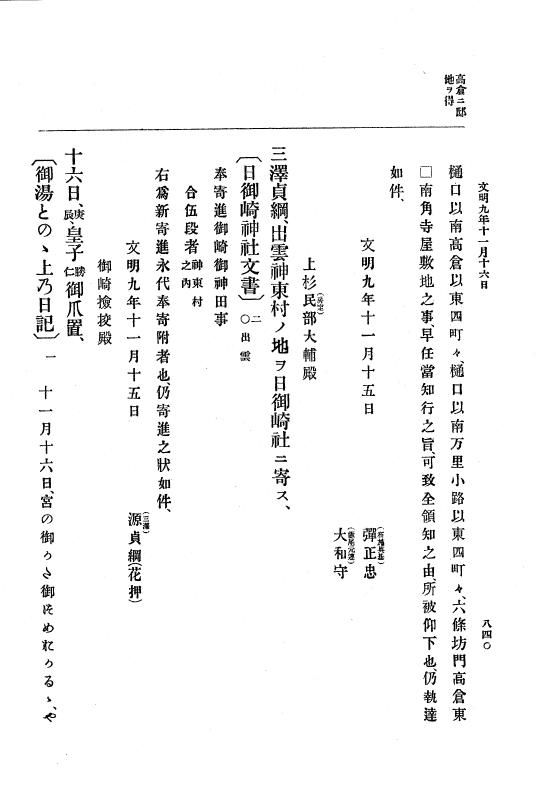 文明九年十一月十六日
八四〇
高倉ニ邸
地ヲ得
樋口以南高倉以東四町々、樋口以南万里小路以東四町々、六條坊門高倉東
□南角寺屋敷地之事、早任當知行之旨、可致全領知之由、所被仰下也、仍執達
如件、
文明九年十一月十五日
彈正忠
大和守
上杉民部大輔殿
三澤貞綱、出雲神東村ノ地ヲ日御崎社ニ寄ス、
〔日御崎神社文書〕二 〇出雲
奉寄進御崎御神田事
合伍段者神東村之內
右爲新寄進永代奉寄附者也、仍寄進之狀如件、
文明九年十一月十五日
源貞綱(花押)
(三澤)
御崎撿挍殿
十六日、庚辰、皇子勝仁御爪置、
〔御湯とのゝ上乃日記〕一 十一月十六日、宮の御うた御そめれうるゝ、や